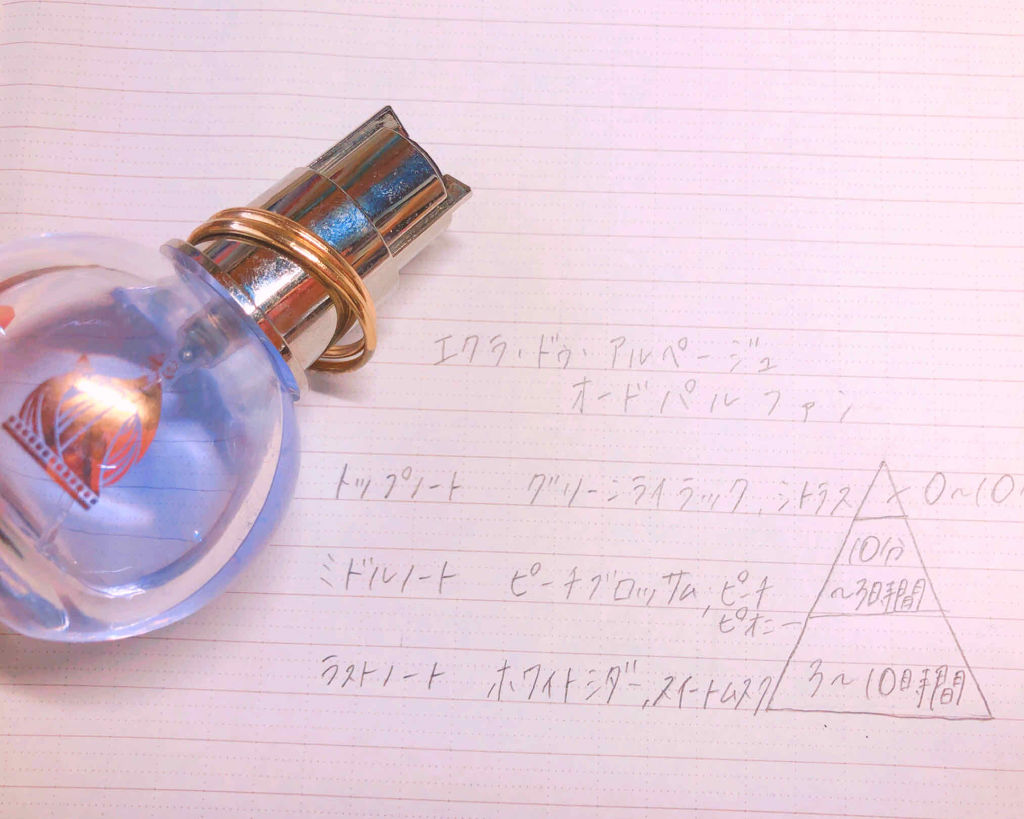 エクラ・ドゥ・アルページュ
オードパルファン
トップノート グリーンライラック、シトラス 0〜10
10分
〜3時間
ミドルノート ピーチブロッサム、ピーチ
ピオニー
ラストノート ホワイトシダー、スイートムスク 3〜10時間